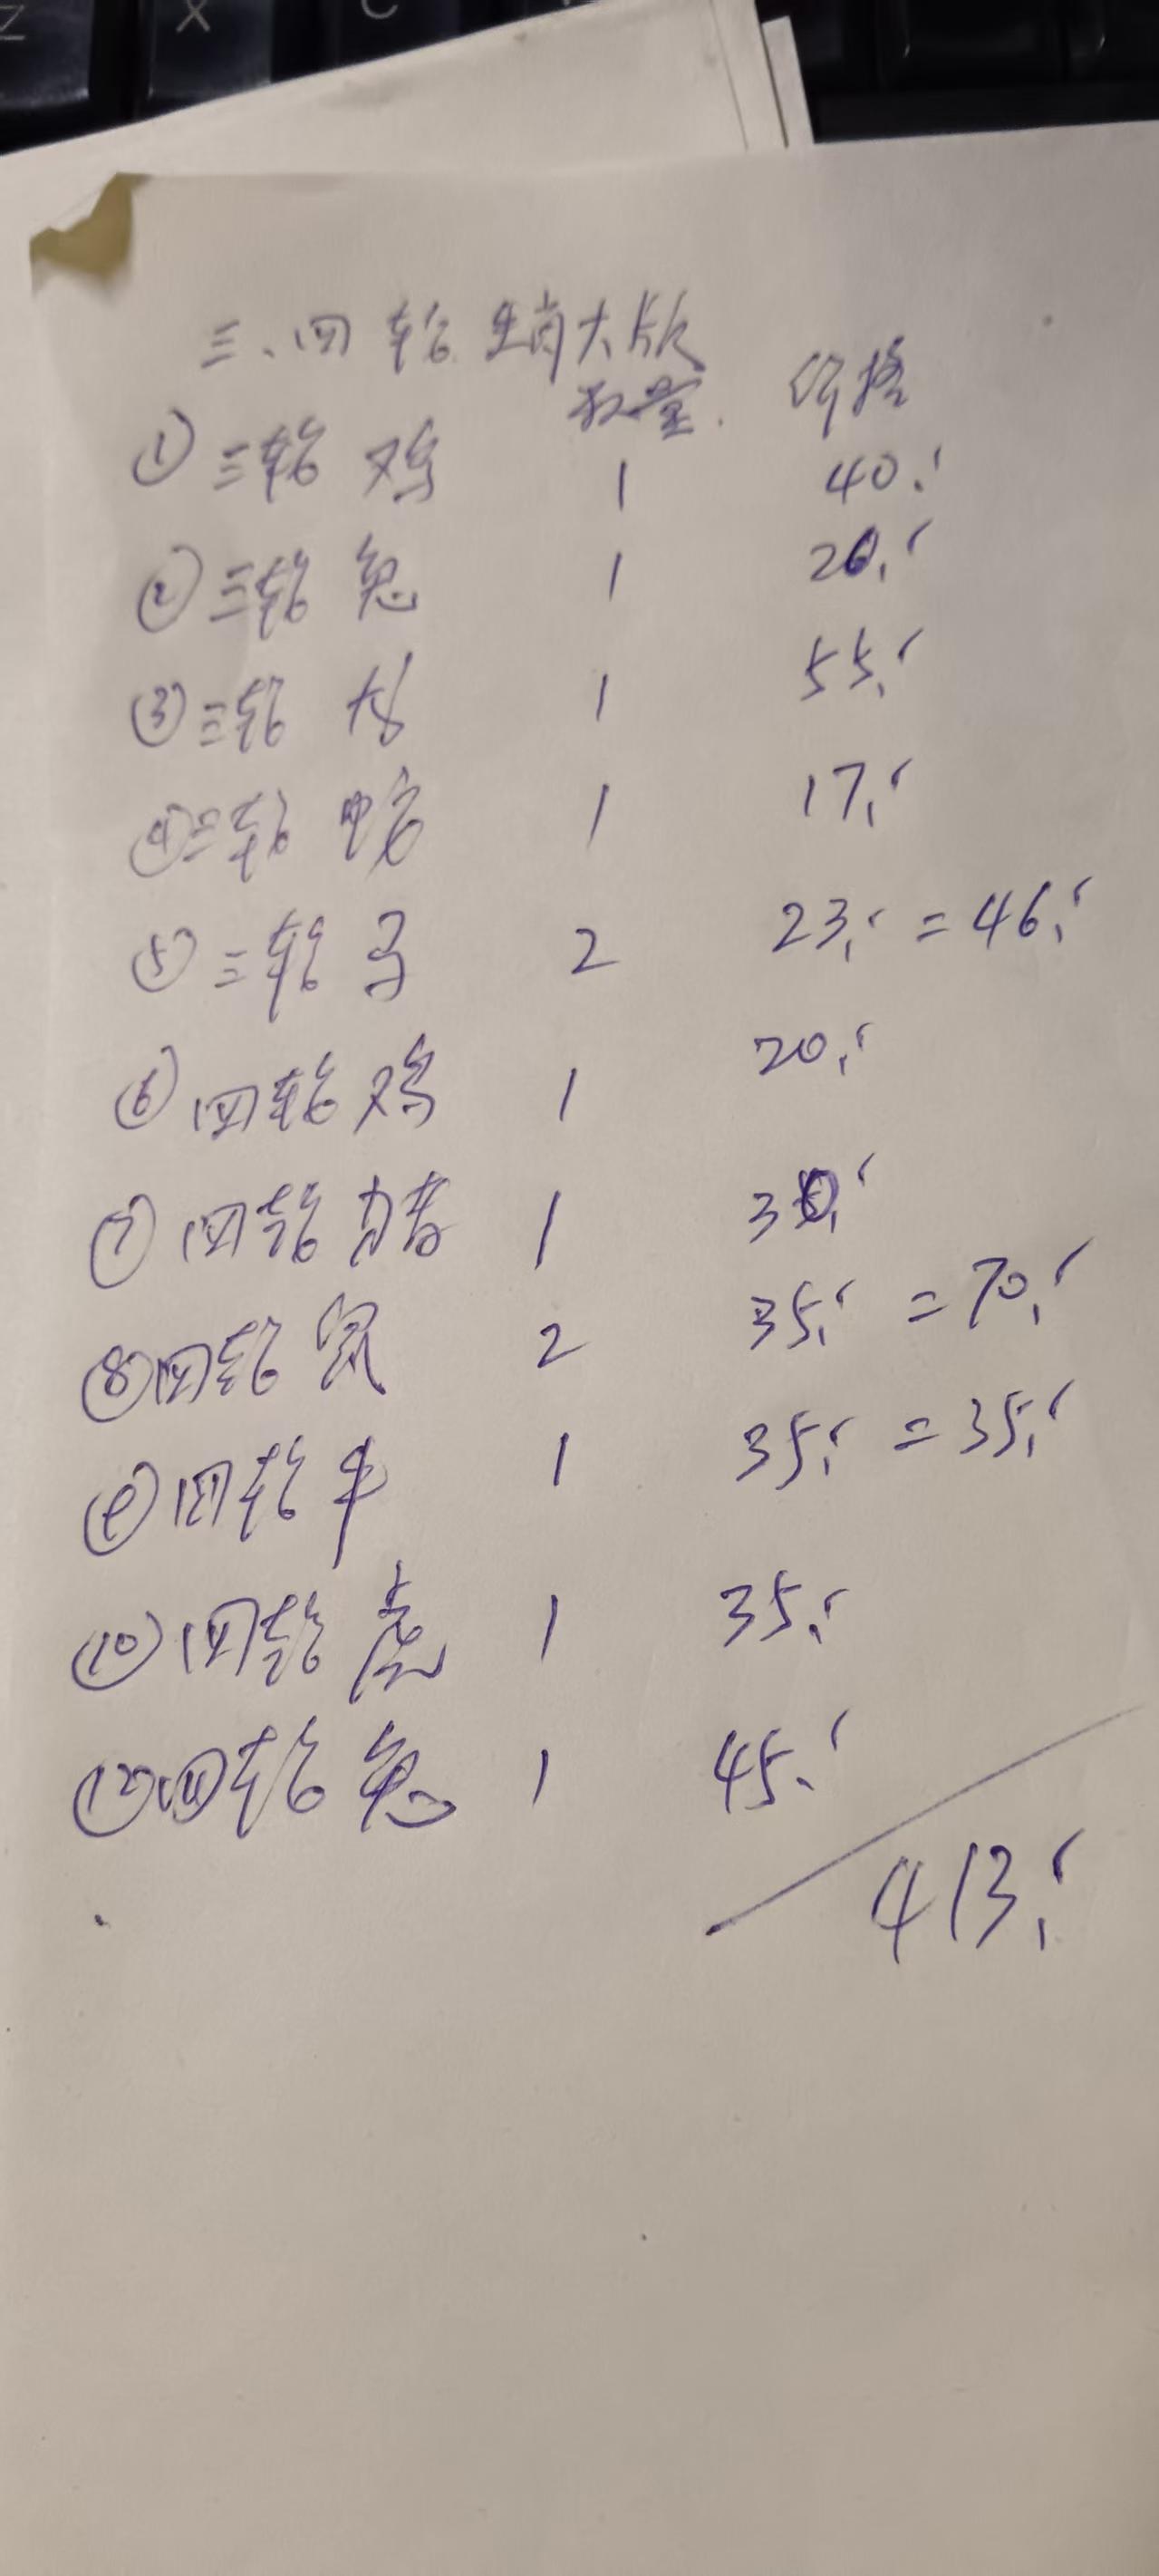 Z X C
三、四轮生肖大版
数量. 价格
① 三轮 鸡 1 40.-
② 三轮 兔 1 20.-
③ 三轮 龙 1 55.-
④ 三轮 蛇 1 17.-
⑤ 三轮 马 2 23.- = 46.-
⑥ 四轮 鸡 1 20.-
⑦ 四轮 猪 1 30.-
⑧ 四轮 鼠 2 35.- = 70.-
⑨ 四轮 牛 1 35.- = 35.-
⑩ 四轮 虎 1 35.-
⑫ 四轮 兔 1 45.-
413.-